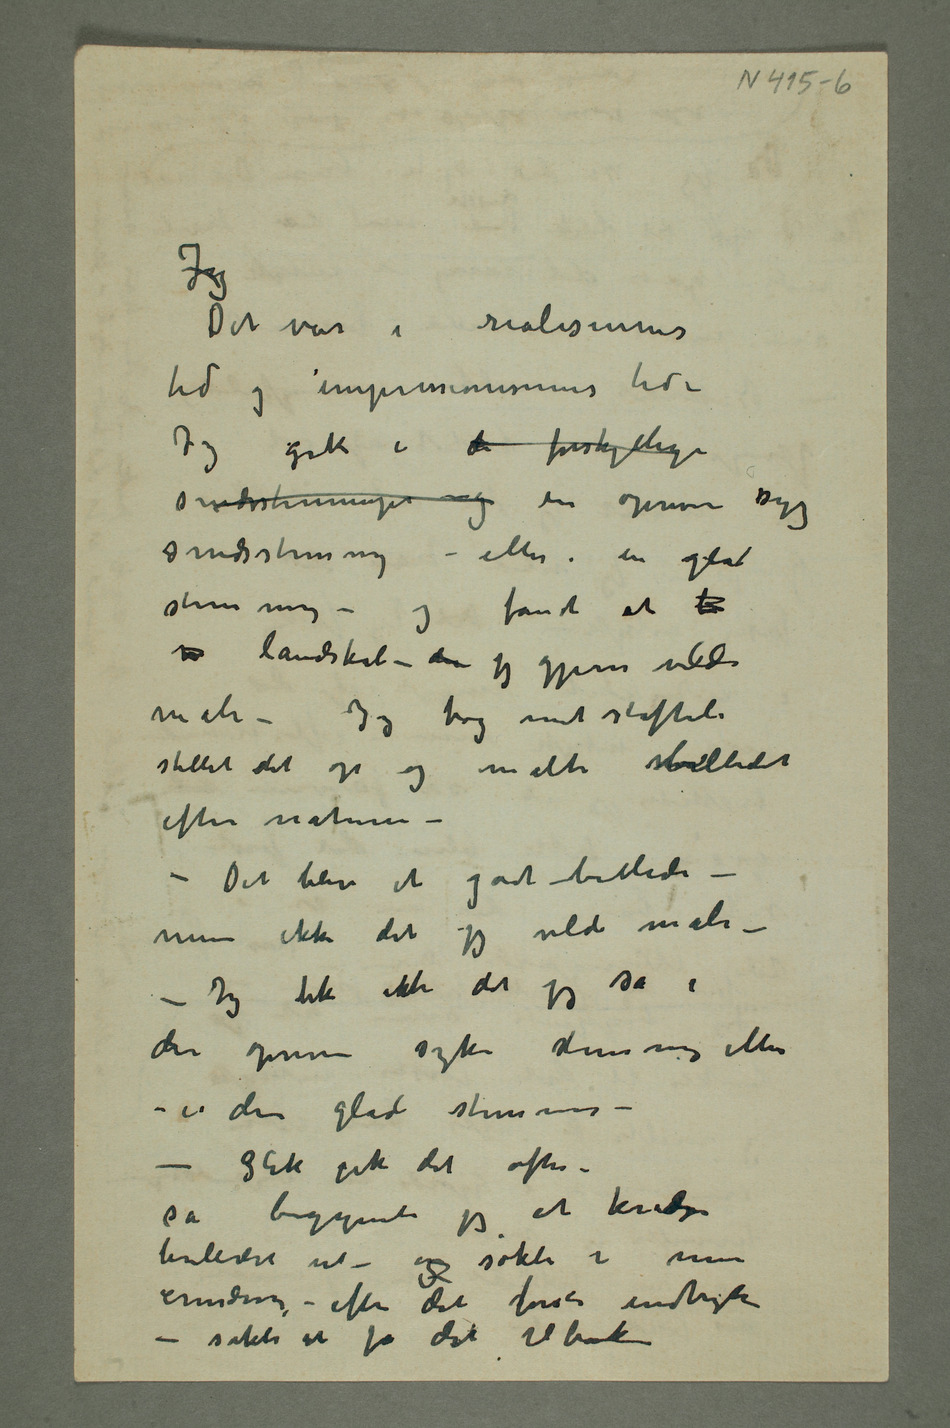 N 415-6
Jeg
Det var i realismens
tid og impressionismens tid –
Jeg gik i de forskjellige
sindsstemninger og en opreven syg
sindsstemning – eller i en glad
stemning – og fandt et
landskab – jeg gjerne vilde
male – Jeg tog mit staffeli
stillet det op og malte billedet
efter naturen –
– Det blev et godt billede –
men ikke det jeg vilde male –
– Jeg fik ikke det jeg så i
den opreven syke stemning eller
– i den glade stemning –
– Slik gik det ofte –
så begynte jeg at kradse
billedet ut – og søkte i min
erindring – efter det første indtryk
– søkte at få det tilbake